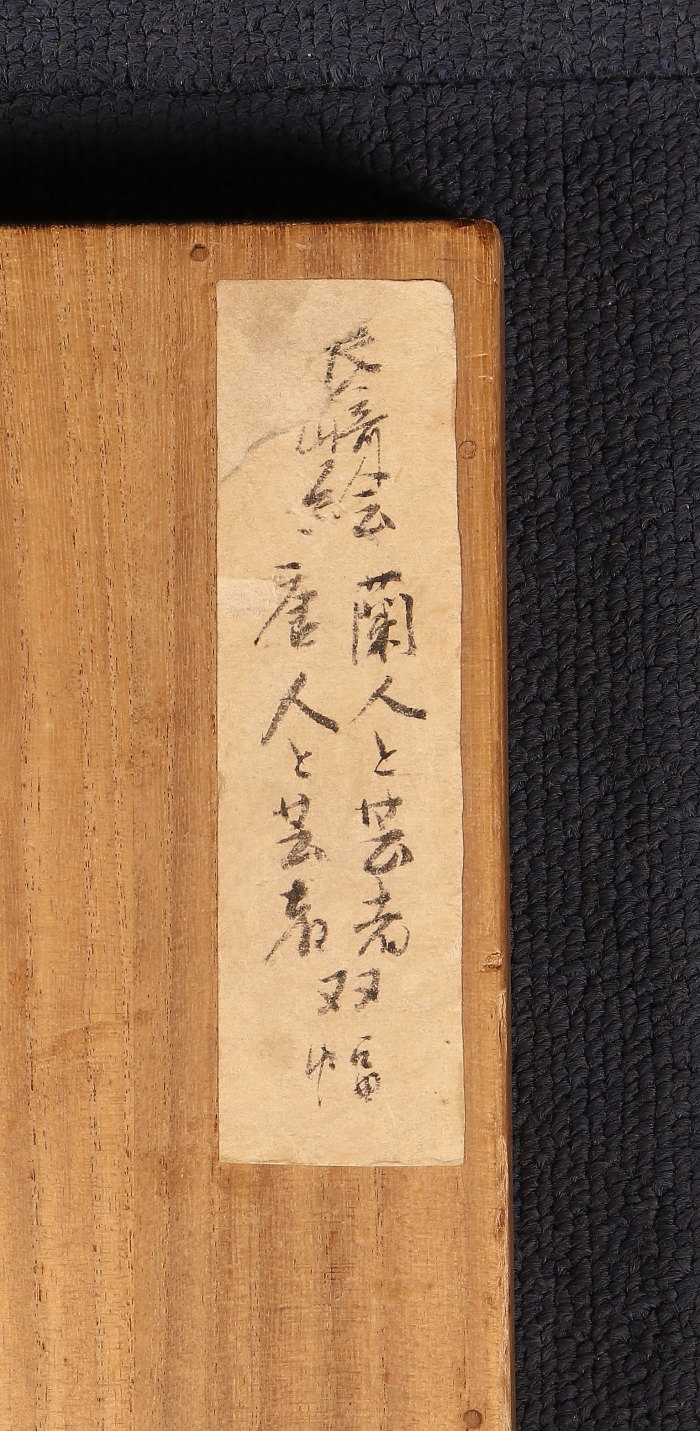 長崎絵
蘭人と芸者
唐人と芸者
双幅